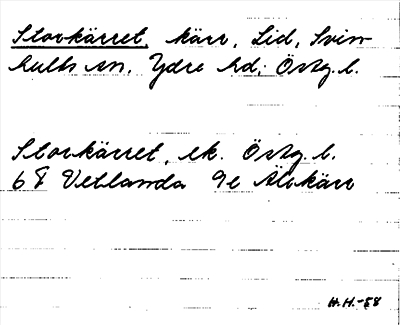 Storkärret, kärr, Lid, Svin-
hults sn, Ydre hd, Östg. l.
Storkärret, ek. Östg. l.
6 F Vetlanda 9e Älekärr
H.H.-58